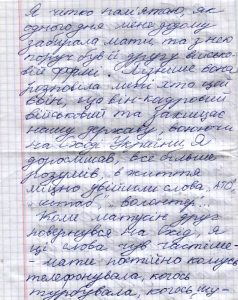 Я чітко пам'ятаю, як
одного дня мене додому
забирала мати, та з нею
поруч був її друг у військо-
вій формі. Пізніше вона
розповіла мені хто цей
воїн, що він кадровий
військовий та захищає
нашу державу, воюючи
на Сході України. Я
дорослішав, все більше
розумів, в життя
міцно увійшли слова „АТО",
„штаб", „волонтер".
Коли матусин друг
повернувся на Схід, я
ці слова чув частіше -
- мати постійно комусь
телефонувала, когось
турбувала, когось шу-